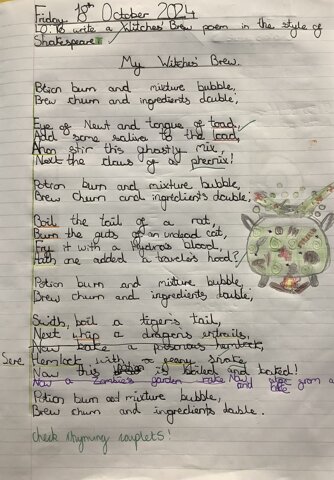 Friday 18th October 2024
LO: To write a Witches' Brew poem in the style of
Shakespeare.
My Witches' Brew.
Potion burn and mixture bubble,
Brew churn and ingredients double,
Eye of Newt and tongue of toad,
Add some saliva to the load,
then stir this ghostly mix,
Next the claws of a pheonix!
Potion burn and mixture bubble,
Brew churn and ingredients double,
Boil the tail of a rat,
Burn the guts of an undead cat,
Fry it with a Hydra's blood,
have added a traveler's hood?
Potion burn and mixture bubble,
Brew churn and ingredients double,
boil a tiger's tail,
Next whip a dragons entrails,
Now bake a poisonous hemlock,
Hemlock with a snake
Now this is boiled and baked!
Now a Zombie's garden rake Now and also from a
Potion burn and mixture bubble,
Brew churn and ingredients double.
check rhyming couplets!